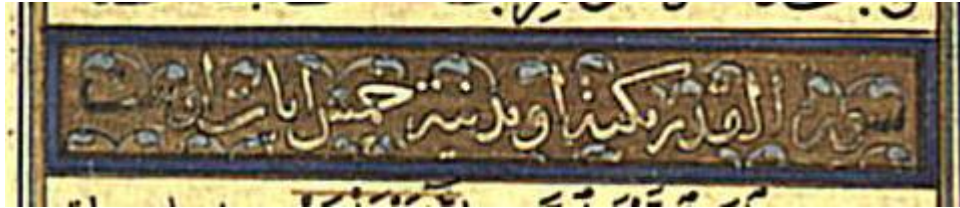 سورة القدر مكية او مدنية خمس ايات او ست